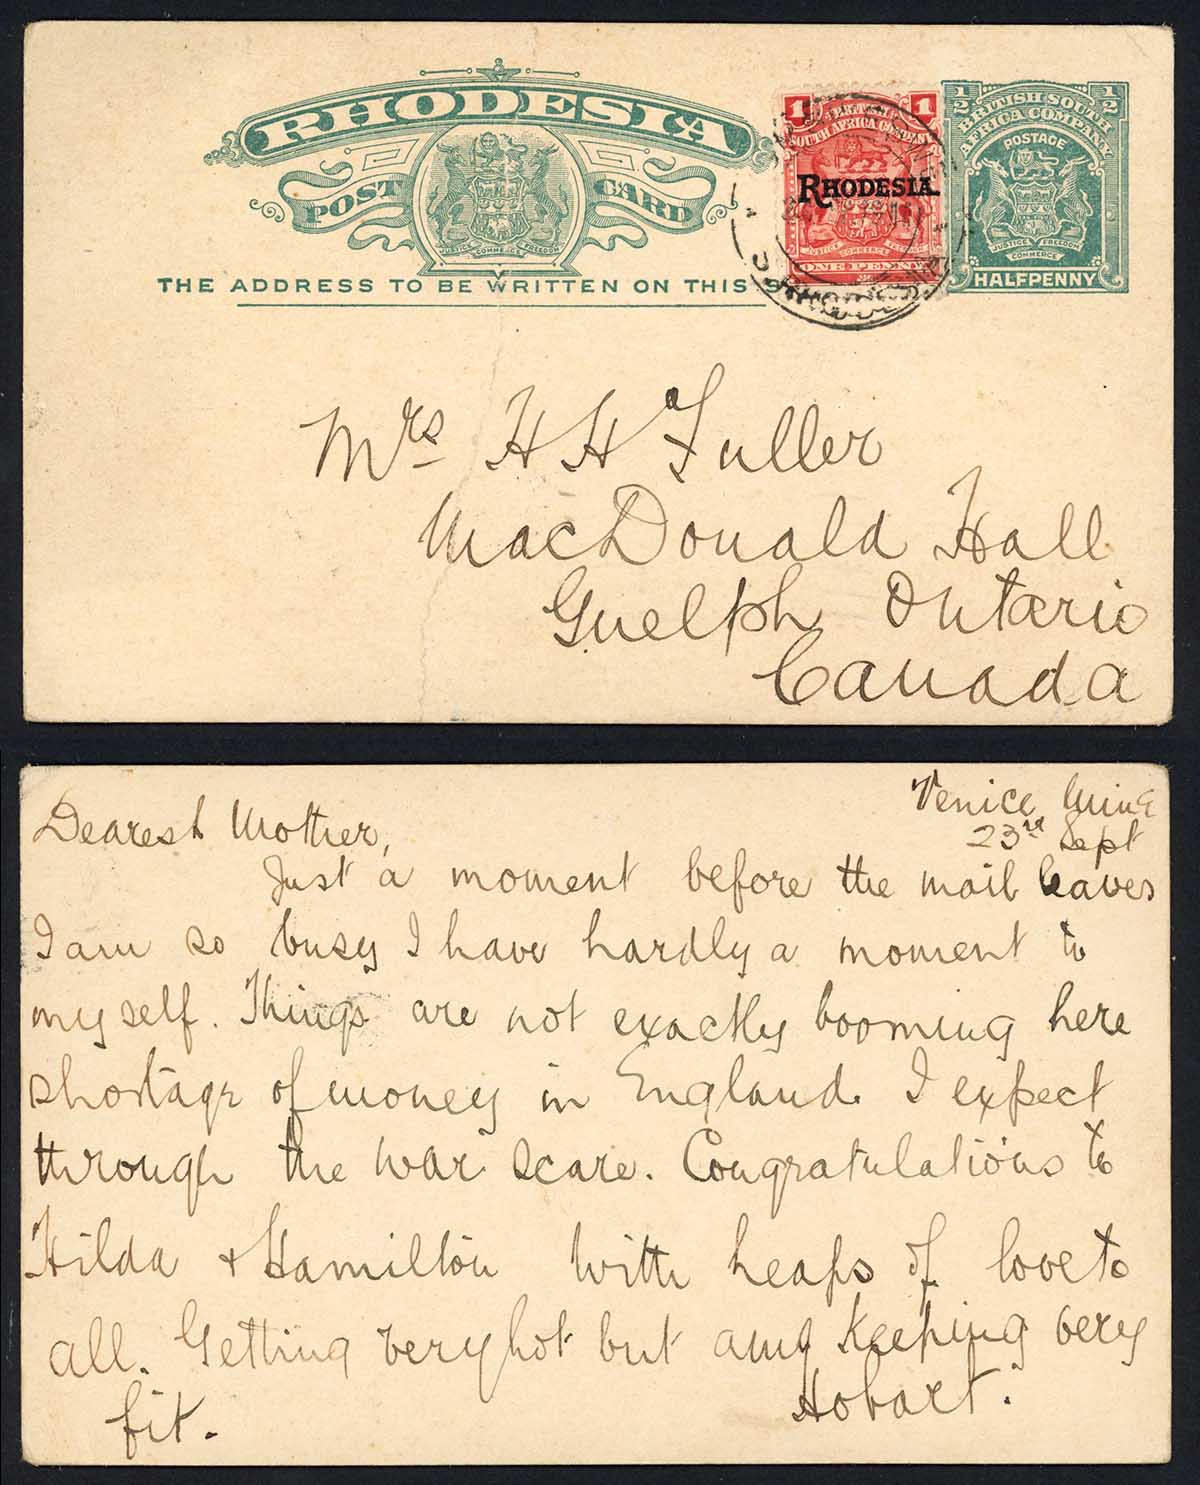 RHODESIA
POST CARD
JUSTICE COMMERCE FREEDOM
THE ADDRESS TO BE WRITTEN ON THIS
1 1
BRITISH
SOUTH AFRICA COMPANY
RHODESIA.
JUSTICE COMMERCE FREEDOM
ONE PENNY
1/2 1/2
BRITISH SOUTH
AFRICA COMPANY
POSTAGE
JUSTICE FREEDOM
COMMERCE
HALFPENNY
Mrs H H Fuller
MacDonald Hall
Guelph Ontario
Canada
Venice Mine
23rd Sept
Dearest Mother,
Just a moment before the mail leaves
I am so busy I have hardly a moment to
myself. Things are not exactly booming here
shortage of money in England. I expect
through the war scare. Congratulations to
Hilda + Hamilton with heaps of love to
all. Getting very hot but am keeping very
fit.
Hobart.